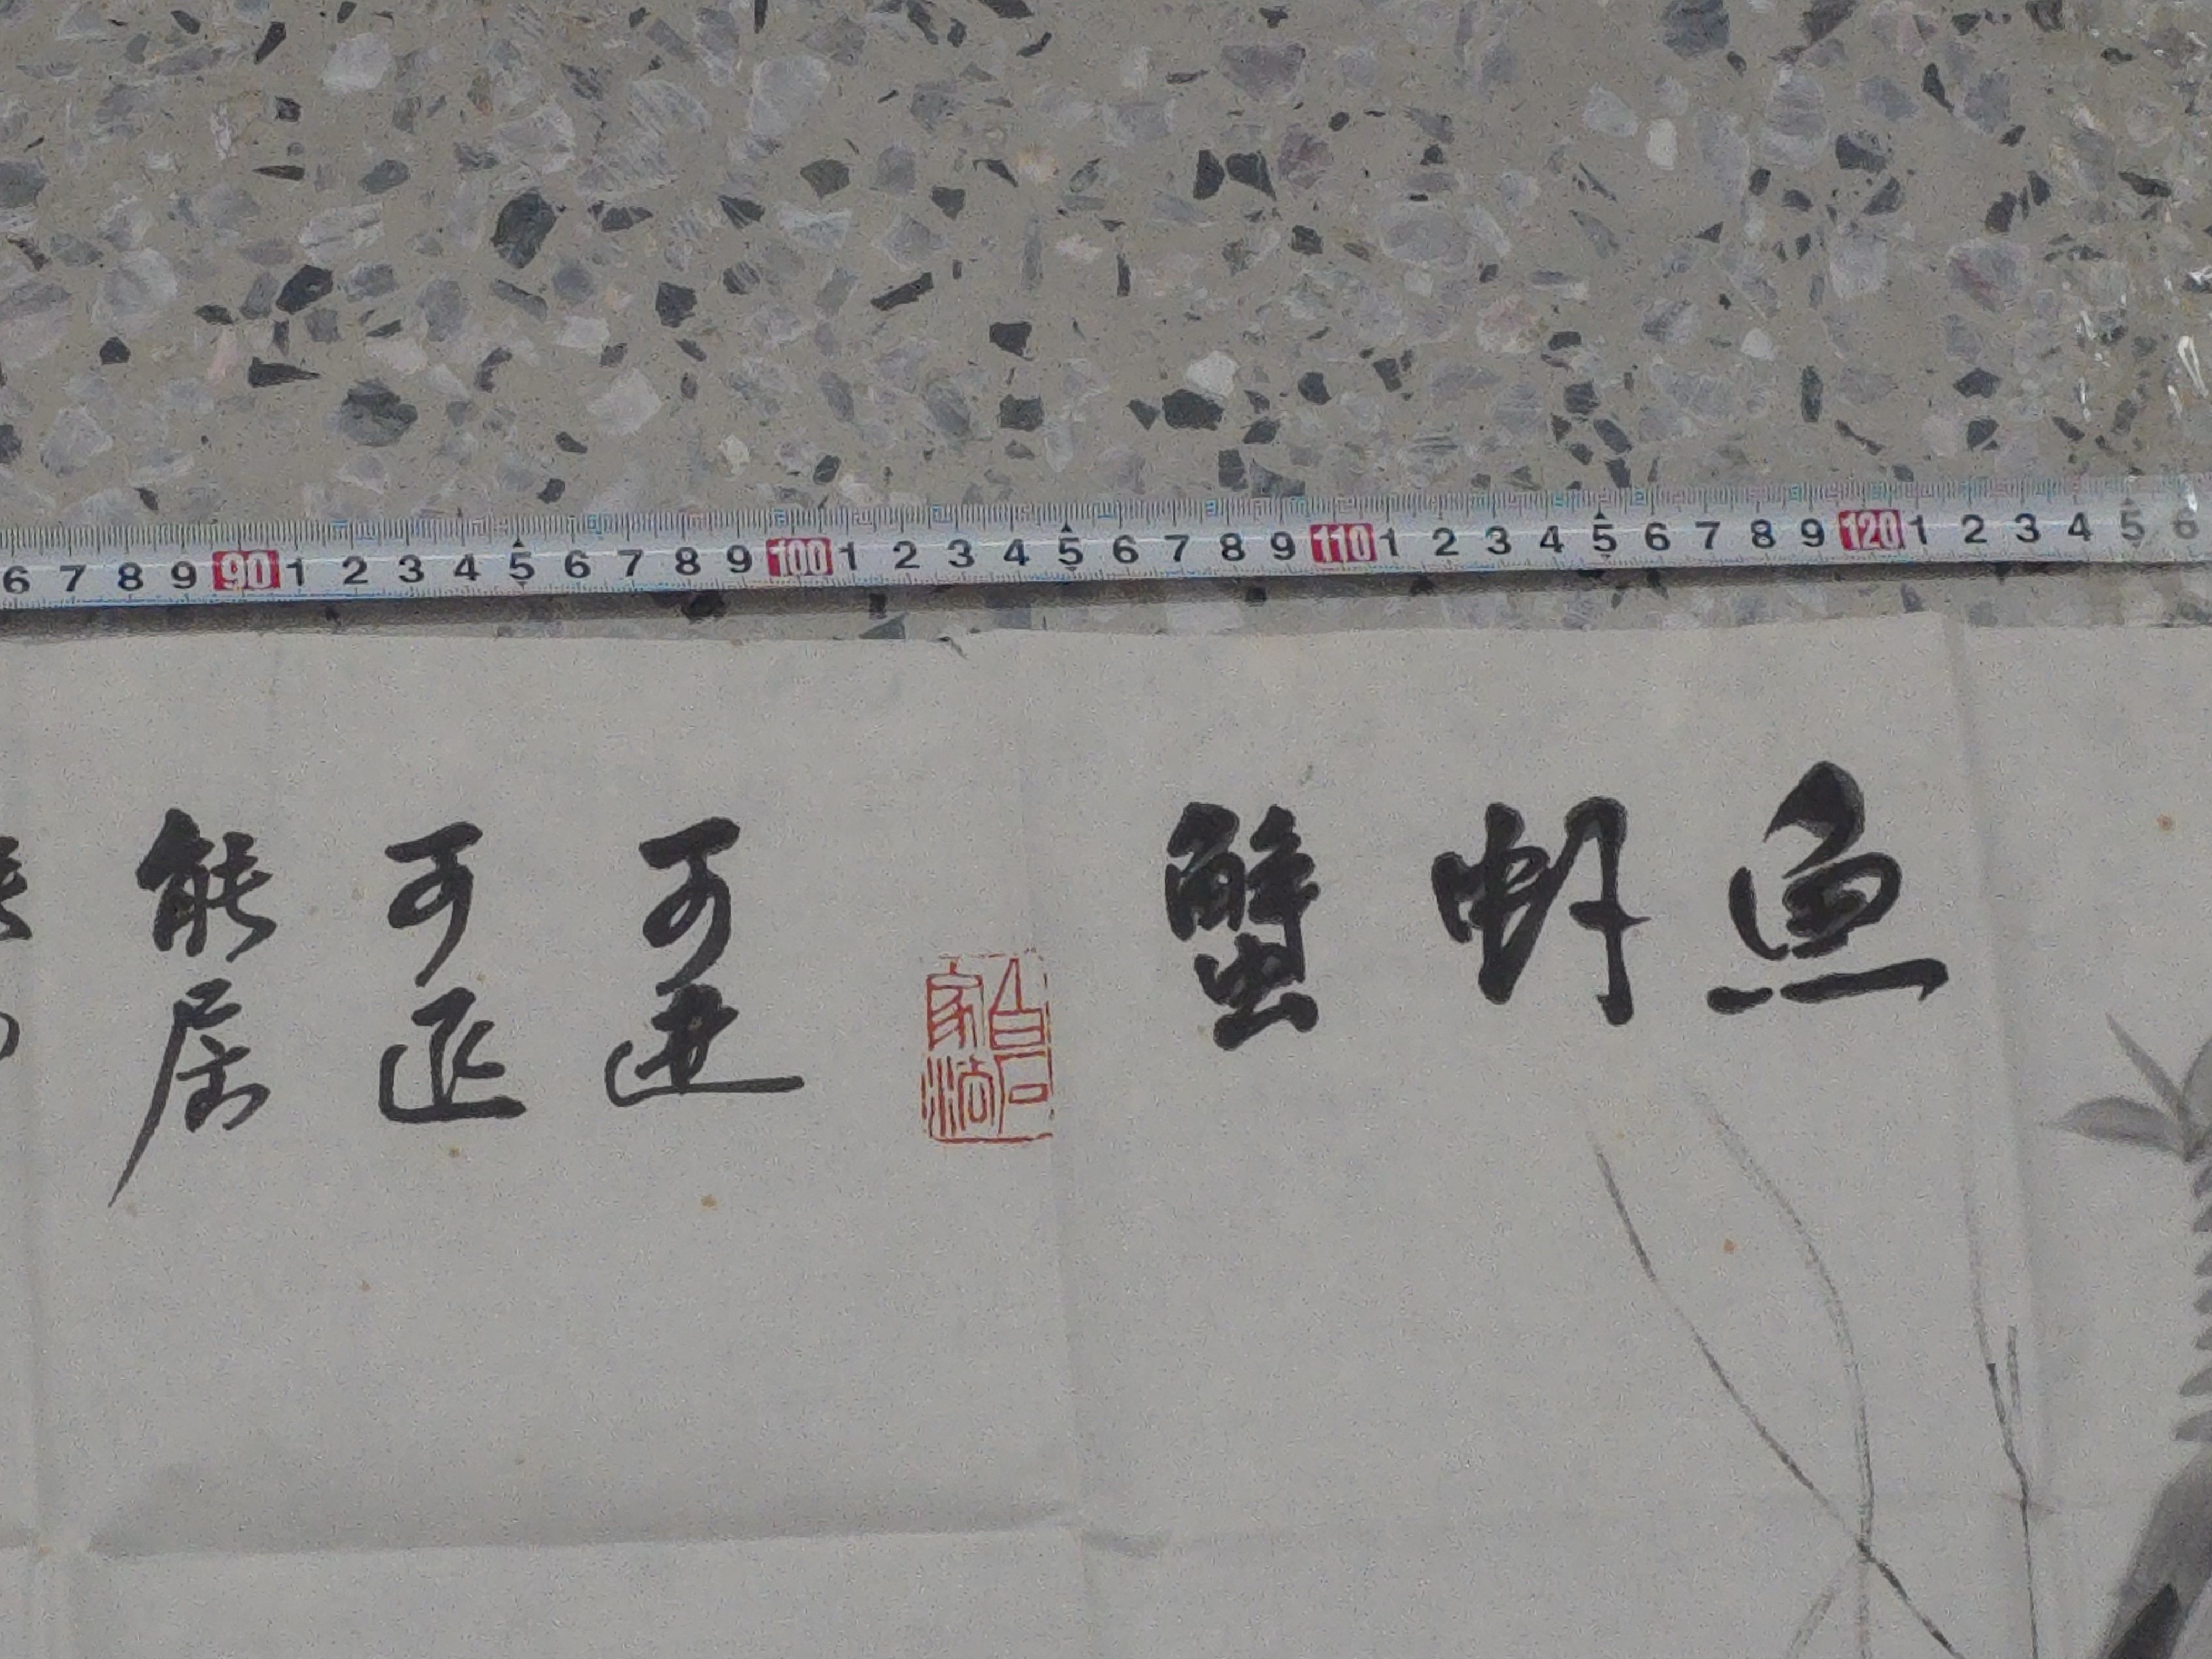 6 7 8 9 90 1 2 3 4 5 6 7 8 9 100 1 2 3 4 5 6 7 8 9 110 1 2 3 4 5 6 7 8 9 120 1 2 3 4 5 6
魚虾蟹
可進
可退
能居